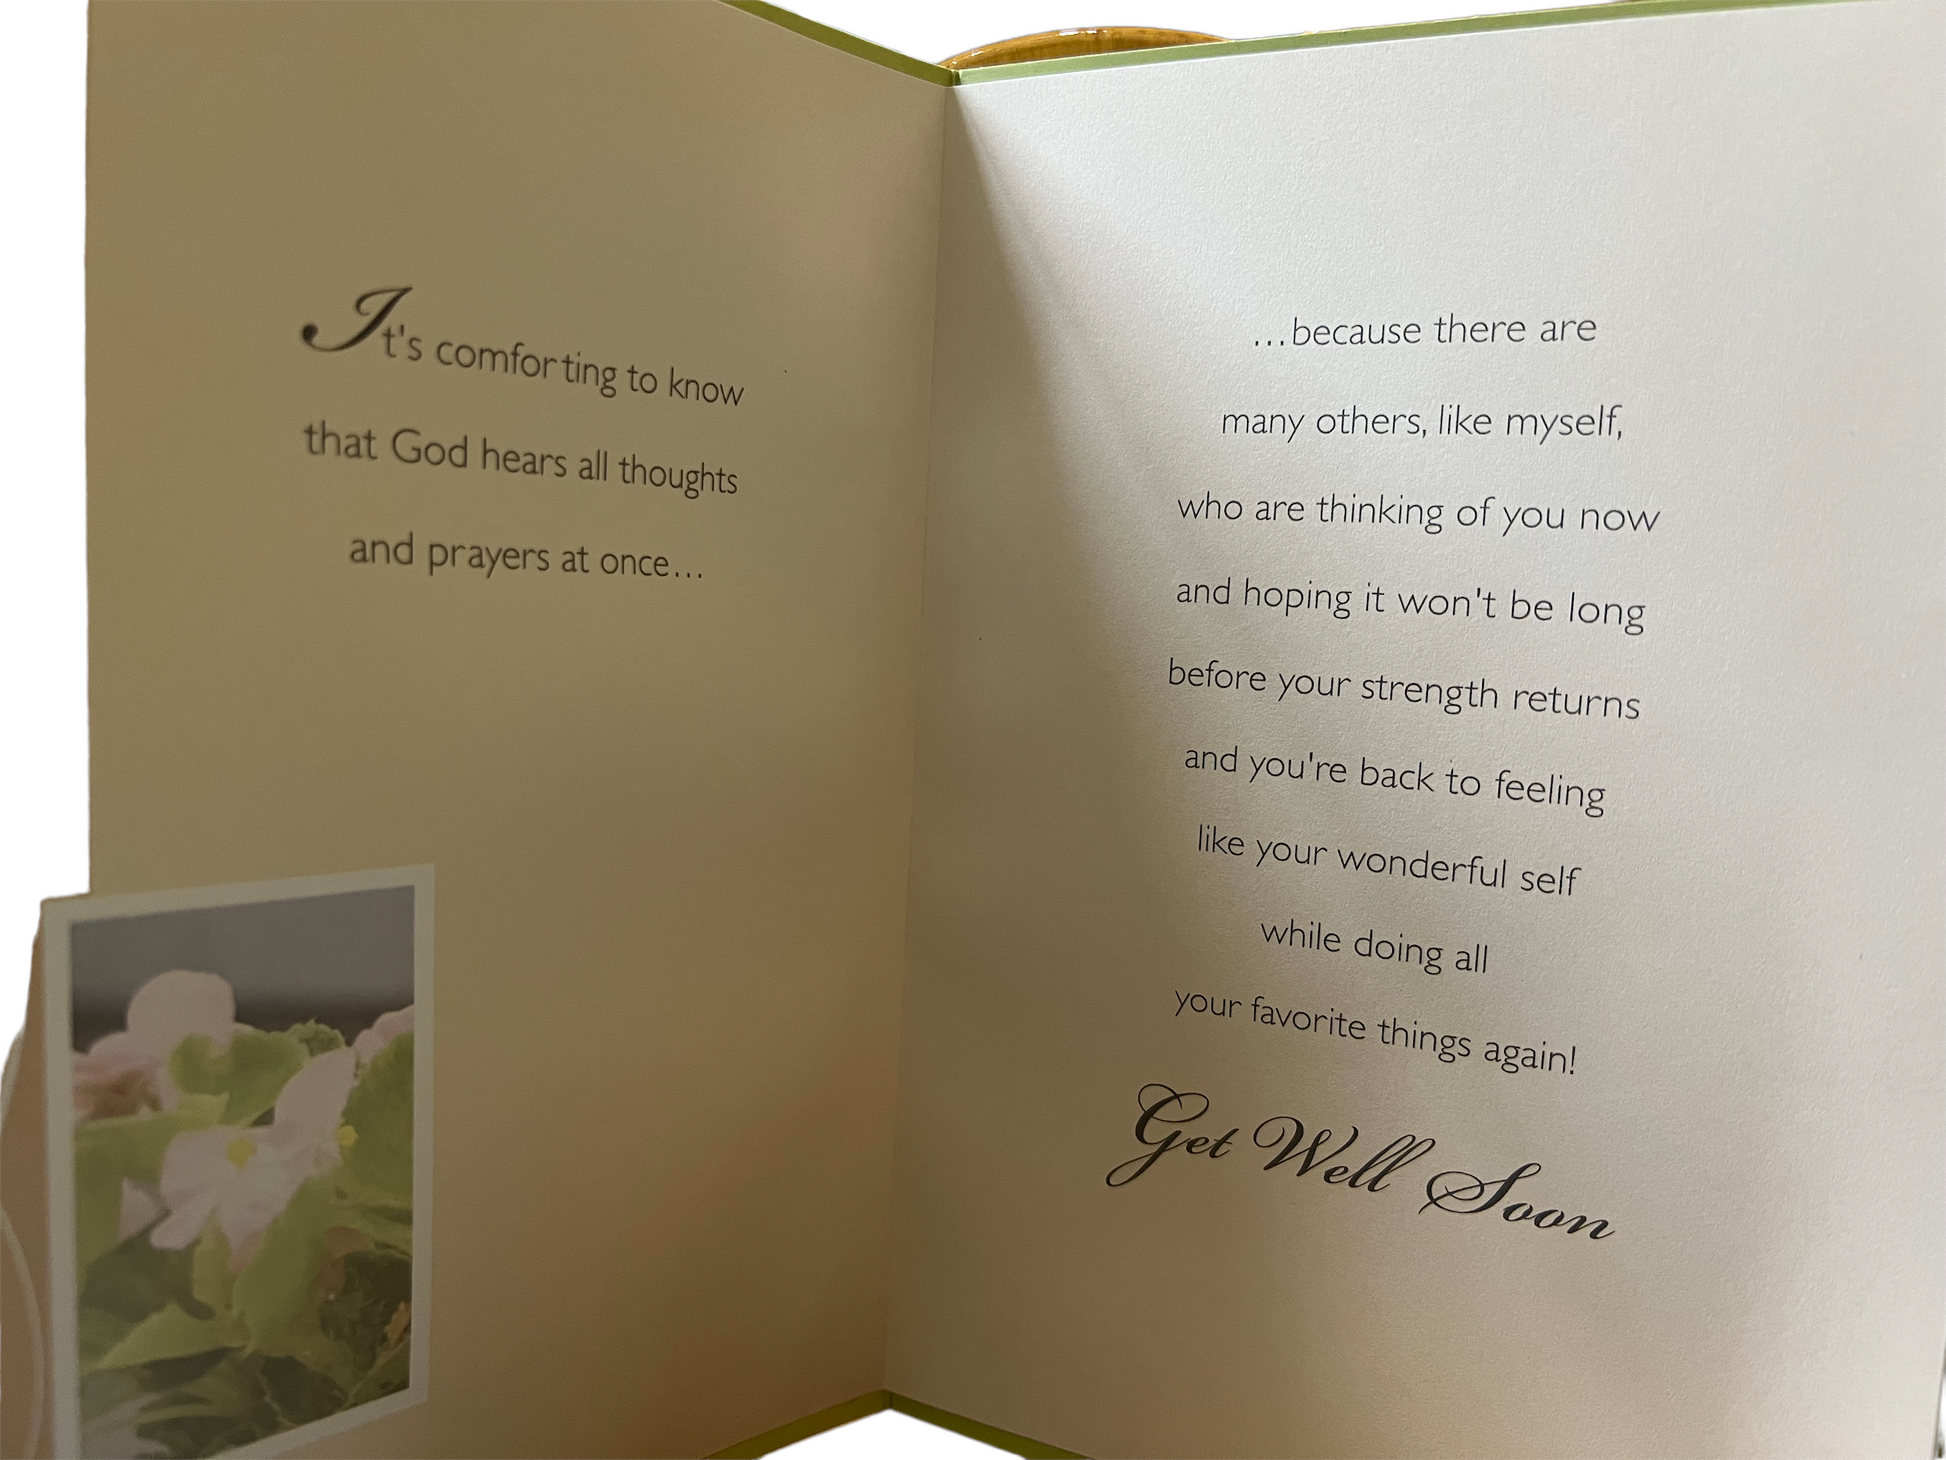 It's comforting to know
that God hears all thoughts
and prayers at once...
...because there are
many others, like myself,
who are thinking of you now
and hoping it won't be long
before your strength returns
and you're back to feeling
like your wonderful self
while doing all
your favorite things again!
Get Well Soon